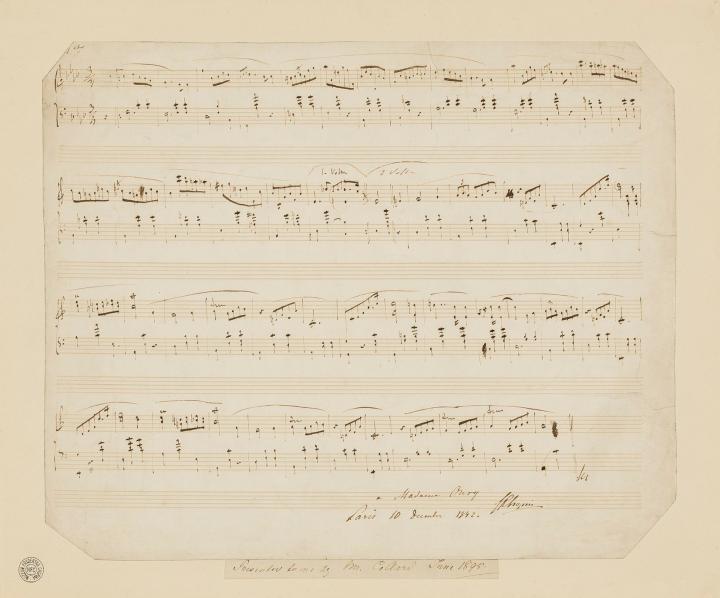 1a Volta 2 Volta
a Madame Oury
Paris 10 decembre 1842. FChopin
Presented to me by Mr. Collard June 1895